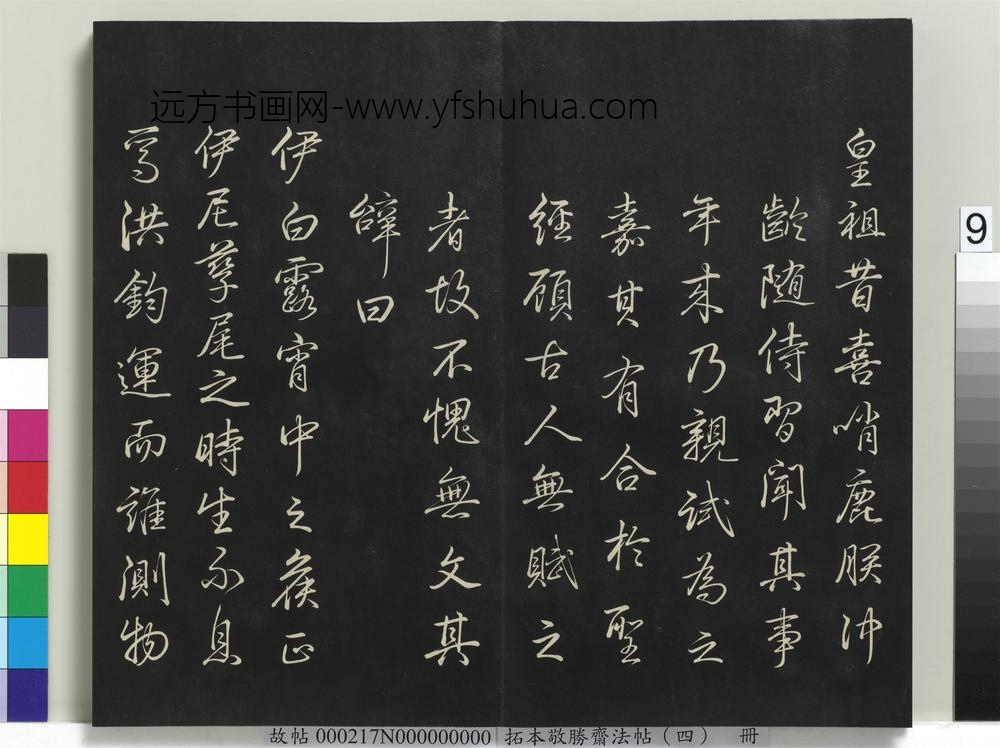 远方书画网-www.yfshuhua.com
皇祖昔喜哨鹿朕沖
齡随侍習聞其事
年來乃親試為之
嘉其有合於聖
經顧古人無賦之
者故不愧無文其
辭曰
伊白露宵中之候正
伊尼孳尾之時生不息
焉洪鈞運而誰測物
9
故帖 000217N000000000 拓本敬勝齋法帖（四） 冊